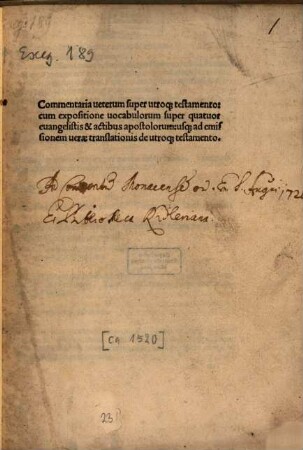 1
Exeg. 189
Commentaria ueterum super utroq; testamento:
cum expositione uocabulorum super quatuor
euangelistis & actibus apostolorum:usq; ad emis
sionem ueræ translationis de utroq; testamento.
Ad Conventum Monacensem ord. Er. S. Augni, 172
Ex Bibliotheca
[ca 1520]
23